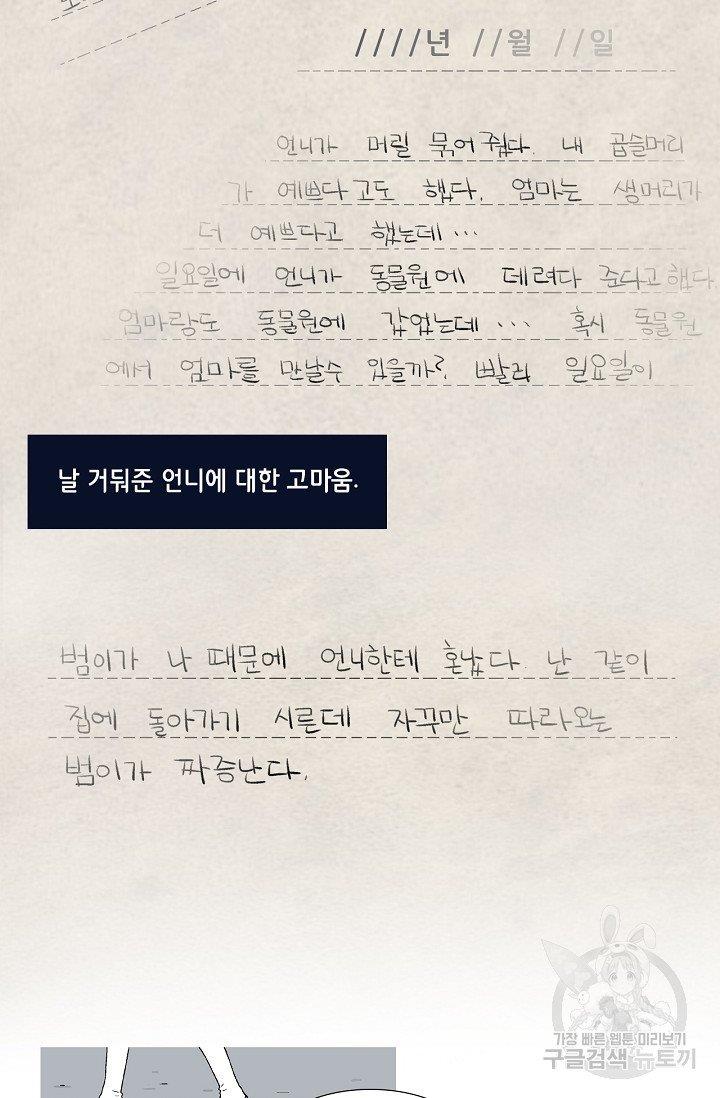 ////년 //월 //일
언니가 머릴 묶어 줬다. 내 곱슬머리
가 예쁘다고도 했다. 엄마는 생머리가
더 예쁘다고 했는데...
일요일에 언니가 동물원에 데려다 준다고 했다
엄마랑도 동물원에 갔었는데... 혹시 동물원
에서 엄마를 만날수 있을까? 빨리 일요일이
날 거둬준 언니에 대한 고마움.
범이가 나 때문에 언니한테 혼났다 난 같이
집에 돌아가기 시른데 자꾸만 따라오는
범이가 짜증난다.
가장 빠른 웹툰 미리보기
구글검색 뉴토끼